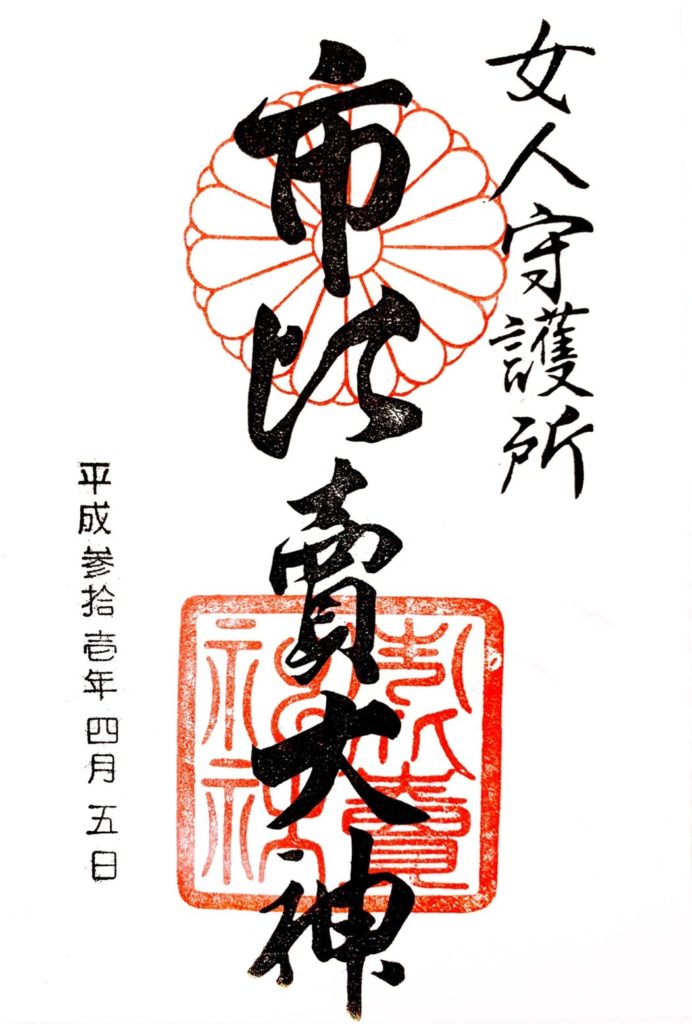 女人守護所
市比賣大神
市比賣神社
平成参拾壱年四月五日